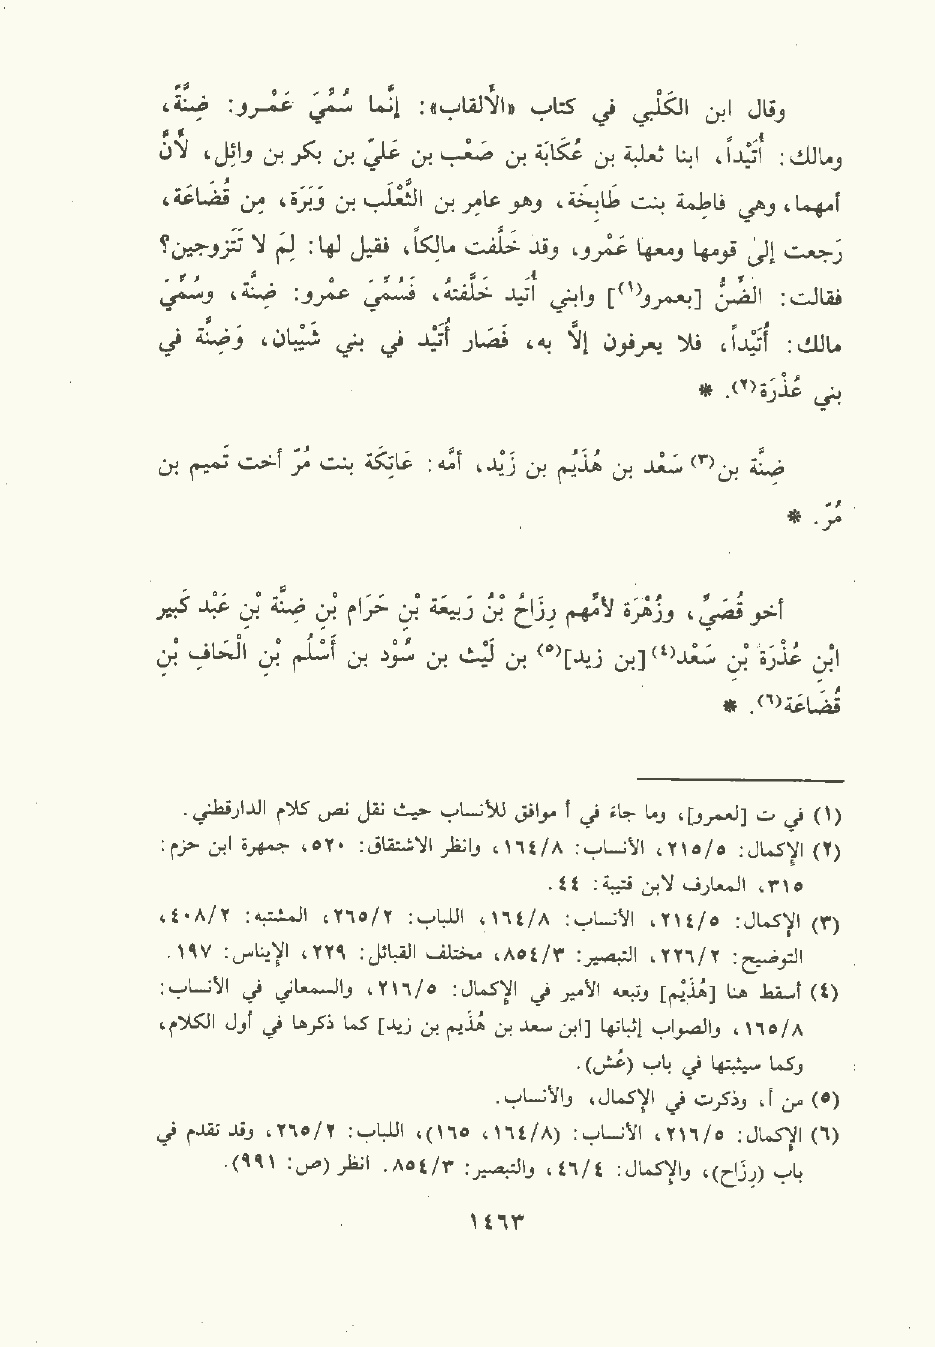 وقال ابن الكَلْبي في كتاب «الألقاب»: إنَّما سُمِّيَ عَمْـرو: ضِنَّةَ،
ومالك: أُتَيْداً، ابنا ثعلبة بن عُكَابَة بن صَعْب بن عَليّ بن بكر بن وائل، لأنَّ
أمهما، وهي فاطمة بنت طَابِخَة، وهو عامر بن الثَّعْلَب بن وَبَرَة، مِن قُضَاعَة،
رَجعت إلى قومها ومعها عَمْرو، وقد خَلَّفت مالكا، فقيل لها: لِمَ لا تَتَزوجين؟
فقالت: الضِّنُّ [بعمرو(١)] وابني أتيد خَلَّفتهُ، فَسُمِّيَ عمْرو: ضِنَّة، وسُمِّيَ
مالك: أُتَيْداً، فلا يعرفون إلاَّ به، فَصَار أُتَيْد في بني شَيْبَان، وَضِنَّة في
بني عُذرَة(٢). *
ضِنَّة بن(٣) سَعْد بن هُذَيْم بن زَيْد، أمَّه: عَاتِكَة بنت مُرّ أخت تَميم بن
مُرّ. *
أخو قُصَيٍّ، وزُهْرَة لأمِّهم رِزَاحُ بْنُ رَبيعَة بْنِ حَرَام بْنِ ضِنَّة بْنِ عَبْد كَبير
ابْنِ عُذْرَة بْنِ سَعْد(٤)[بن زيد](٥) بن لَيْث بن سُوْد بن أسْلُم بْنِ الْحَافِ بْنِ
قُضَاعَة(٦). *
(١) في ت [لعمرو]، وما جاء في أ موافق للأنساب حيث نقل نص كلام الدارقطني.
(٢) الإكمال: ٢١٥/٥، الأنساب: ١٦٤/٨، وانظر الاشتقاق: ٥٢٠، جمهرة ابن حزم:
٣١٥، المعارف لابن قتيبة: ٤٤.
(٣) الإكمال: ٢١٤/٥، الأنساب: ١٦٤/٨، اللباب: ٢٦٥/٢، المشتبه: ٤٠٨/٢،
التوضيح: ٢٢٦/٢، التبصير: ٨٥٤/٣، مختلف القبائل: ٢٢٩، الإيناس: ١٩٧.
(٤) أسقط هنا [هُذَيْم] وتبعه الأمير في الإكمال: ٢١٦/٥، والسمعاني في الأنساب:
١٦٥/٨، والصواب إثباتها [ابن سعد بن هُذيم بن زيد] كما ذكرها في أول الكلام،
وكما سيثبتها في باب (عُش).
(٥) من أ، وذكرت في الإكمال، والأنساب.
(٦) الإكمال: ٢١٦/٥، الأنساب: (١٦٤/٨، ١٦٥)، اللباب: ٢٦٥/٢، وقد تقدم في
باب (رِزَاح)، والإكمال: ٤٦/٤، والتبصير: ٨٥٤/٣. انظر (ص: ٩٩١).
١٤٦٣